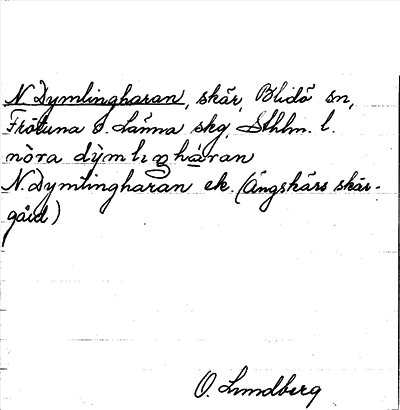 N. Dymlingharan, skär, Blidö sn,
Frötuna o. Länna skg, Sthlm. l.
nòra dỳmlıŋhàran
N. Dymlingharan ek. (Ängskärs skär-
gård)
O. Lundberg